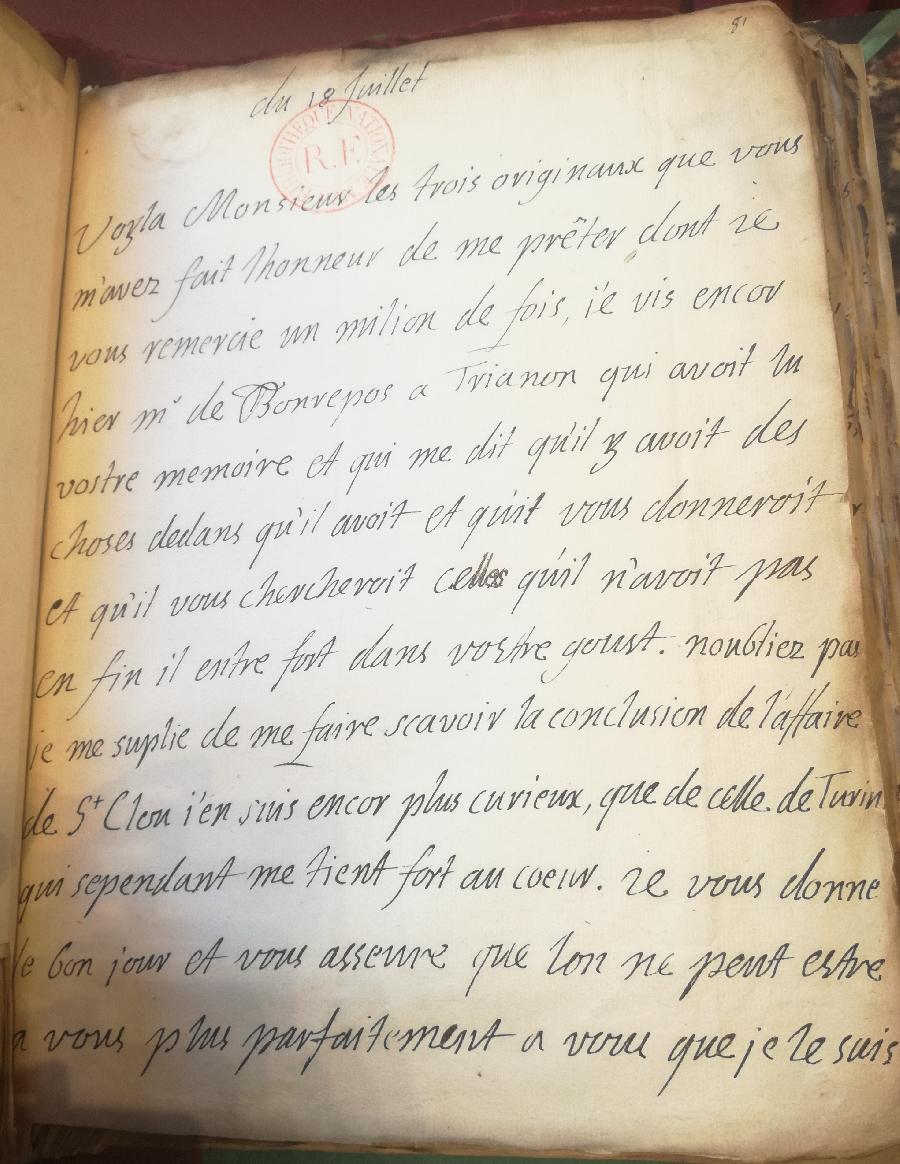 81
du 18 Juillet
BIBLIOTHEQUE NATIONALE R.F
Voyla Monsieur les trois originaux que vous
m'avez fait lhonneur de me prêter dont ie
vous remercie un milion de fois, i'e vis encor
hier mr de Bonrepos a Trianon qui avoit lu
vostre memoire et qui me dit qu'il y avoit des
choses dedans qu'il avoit et quit vous donneroit
et qu'il vous chercheroit celles qu'il n'avoit pas
en fin il entre fort dans vostre goust. noubliez pas
je me suplie de me faire scavoir la conclusion de l'affaire
de St Clou i'en suis encor plus curieux, que de celle de Turin
qui sependant me tient fort au coeur. ie vous donne
le bon jour et vous asseure que lon ne peut estre
a vous plus parfaitement a vous que je le suis